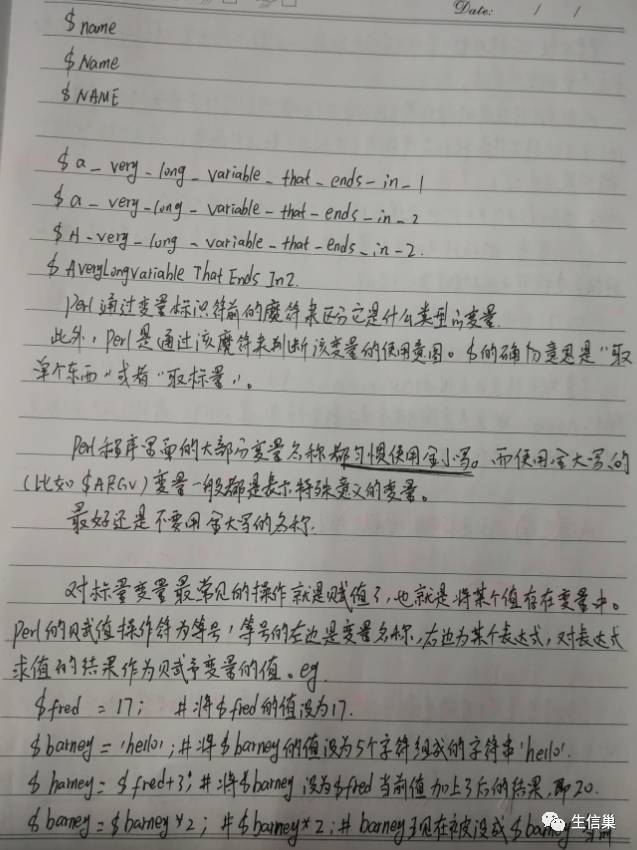 Date: / /
$name
$Name
$NAME
$a_very_long_variable_that_ends_in_1
$a_very_long_variable_that_ends_in_2
$A_very_long_variable_that_ends_in_2.
$AveryLongvariableThatEndsIn2.
Perl通过变量标识符前的魔符来区分它是什么类型的变量.
此外,Perl是通过该魔符来判断该变量的使用意图。$的确切意思是“取
单个东西”或者“取标量”。
Perl程序里面的大部分变量名称都习惯使用全小写。而使用全大写的
(比如$ARGV)变量一般都是表示特殊意义的变量。
最好还是不要用全大写的名称.
对标量变量最常见的操作就是赋值了,也就是将某个值存在变量中。
Perl的赋值操作符为等号,等号的左边是变量名称,右边为某个表达式,对表达式
求值的结果作为赋予变量的值。eg.
$fred = 17; #将$fred的值设为17.
$barney = 'hello'; #将$barney的值设为5个字符组成的字符串'hello'.
$barney = $fred+3; #将$barney设为$fred当前值加上3后的结果,即20.
$barney = $barney*2; #$barney*2; #barney现在被设成$barney当前
生信巢